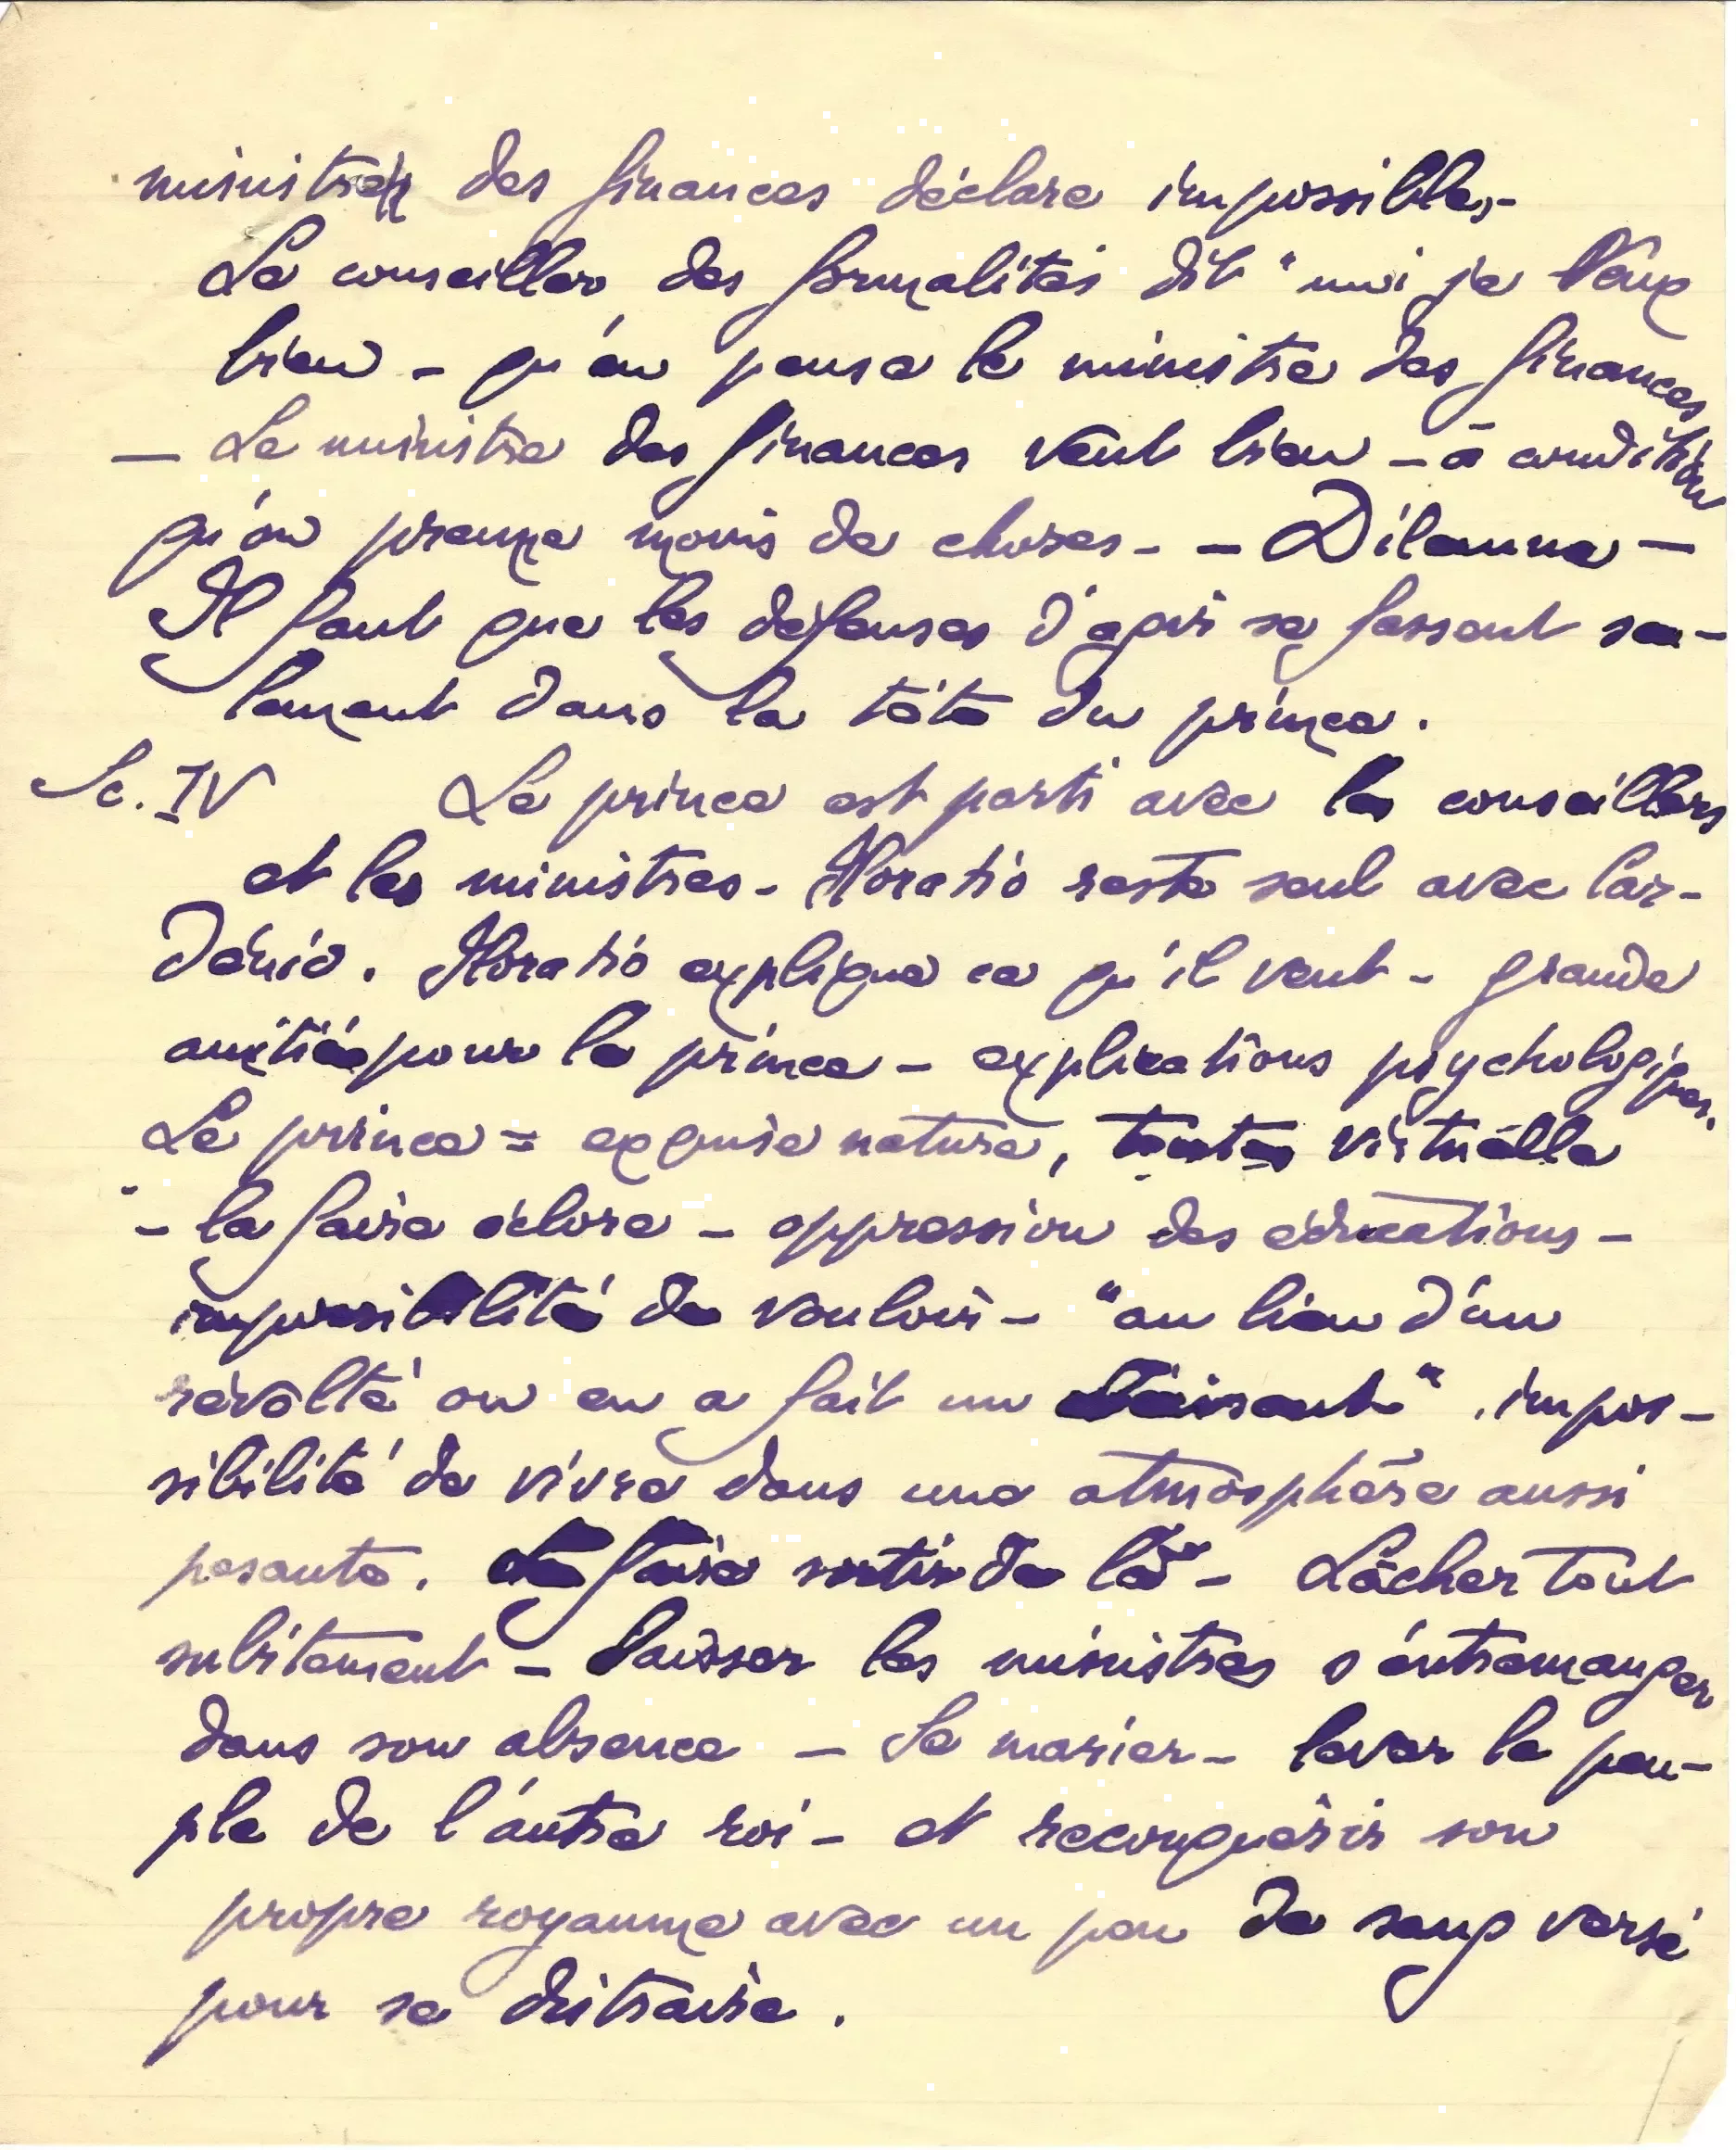 ministre des finances déclare impossible,-
Le conseiller des formalités dit "moi je veux
bien - qu'en pense le ministre des finances
- Le ministre des finances veut bien - à condition
qu'on prenne moins de choses - - Dilemme -
Il faut que les défenses d'agir se fassent seu-
lement dans la tête du prince.
Sc. IV Le prince est parti avec les conseillers
et les ministres - Horatio reste seul avec Car-
dénio. Horatio explique ce qu'il veut - grande
amitié pour le prince - explications psychologiques.
Le prince = exquise nature, toute virtuelle
- la faire éclore - oppression des éducations -
impossibilité de vouloir - "au lieu d'un
révolté on en a fait un " . impos-
sibilité de vivre dans une atmosphère aussi
pesante. Le faire sortir de là - Lâcher tout
subitement - laisser les ministres s'entremanger
dans son absence - Se marier - lever le peu-
ple de l'autre roi - et reconquérir son
propre royaume avec un peu de sang versé
pour se distraire.